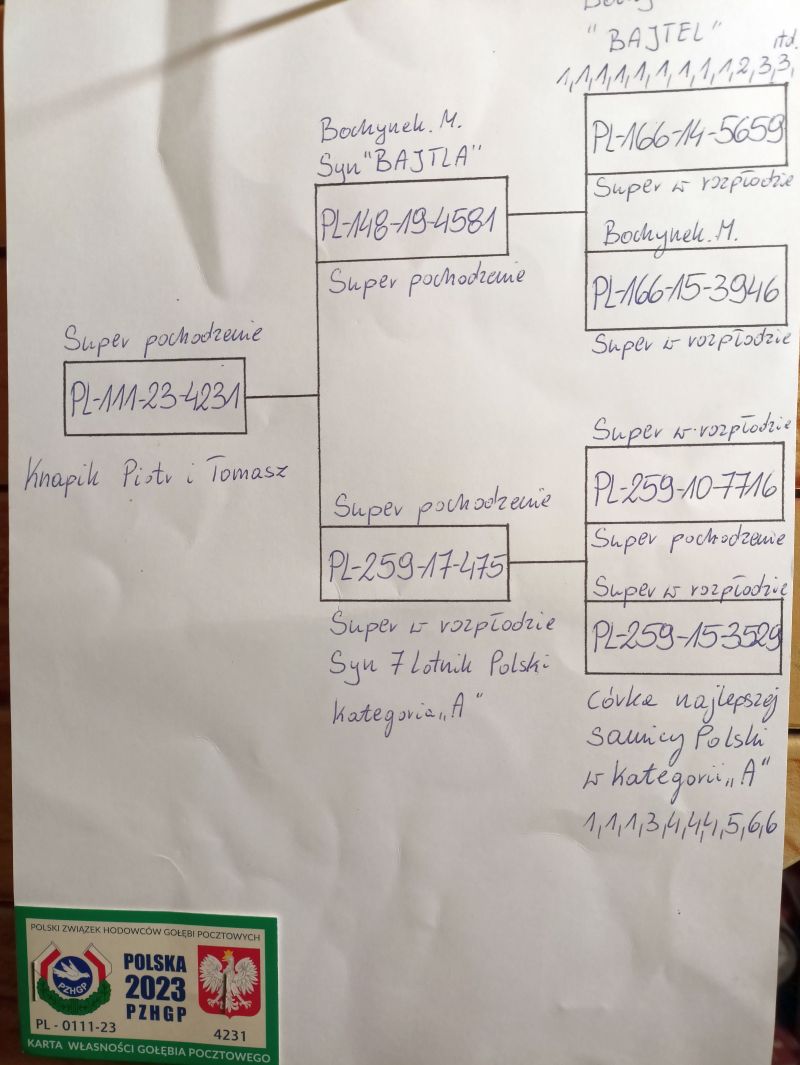 "BAJTEL"
itd.
1,1,1,1,1,1,1,1,1,2,3,3,
PL-166-14-5659
Super w rozpłodzie
Bochynek. M.
Syn "BAJTLA"
PL-148-19-4581
Super pochodzenie
Bochynek. M.
PL-166-15-3946
Super w rozpłodzie
Super pochodzenie
PL-111-23-4231
Knapik Piotr i Tomasz
Super w rozpłodzie
PL-259-10-7716
Super pochodzenie
Super pochodzenie
PL-259-17-475
Super w rozpłodzie
Syn 7 lotnik Polski
Kategoria „A"
Super w rozpłodzie
PL-259-15-3529
Córka najlepszej
Samicy Polski
w kategorii „A"
1,1,1,3,4,4,4,5,6,6
POLSKI ZWIĄZEK HODOWCÓW GOŁĘBI POCZTOWYCH
PZHGP
POLSKA
2023
PZHGP
PL - 0111-23
4231
KARTA WŁASNOŚCI GOŁĘBIA POCZTOWEGO